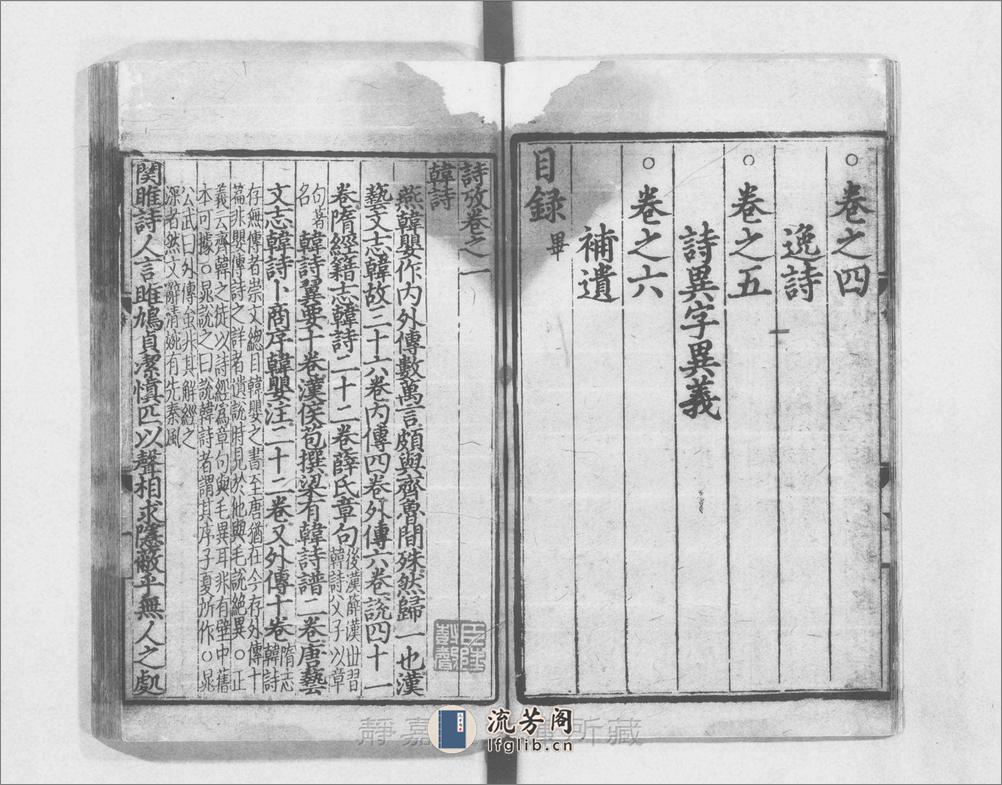 ○卷之四
逸詩
○卷之五
詩異字異義
○卷之六
補遺
目録畢
詩攷卷之一
韓詩
燕韓嬰作内外傳數萬言頗與齊魯間殊然歸一也漢
藝文志韓故三十六卷内傳四卷外傳六卷說四十一
卷隋經籍志韓詩二十二卷薛氏章句後漢薛漢世習韓詩父子以章
句著名韓詩翼要十卷漢侯苞撰梁有韓詩譜二卷唐藝
文志韓詩卜商序韓嬰注二十二卷又外傳十卷隋志韓詩
存無傳者崇文總目韓嬰之書至唐猶在今存外傳十
篇非嬰傳詩之詳者遺說時見於他與毛說絶異○正
義云齊韓之徒以詩經爲章句與毛異耳非有壁中舊
本可據○晁說之曰說韓詩者謂其序子夏所作○晁
公武曰外傳虽非其解經之
深者然文辭清婉有先秦風
関雎詩人言雎鳩貞潔慎匹以聲相求隱蔽乎無人之處
靜嘉
所藏
流芳阁
lfglib.cn